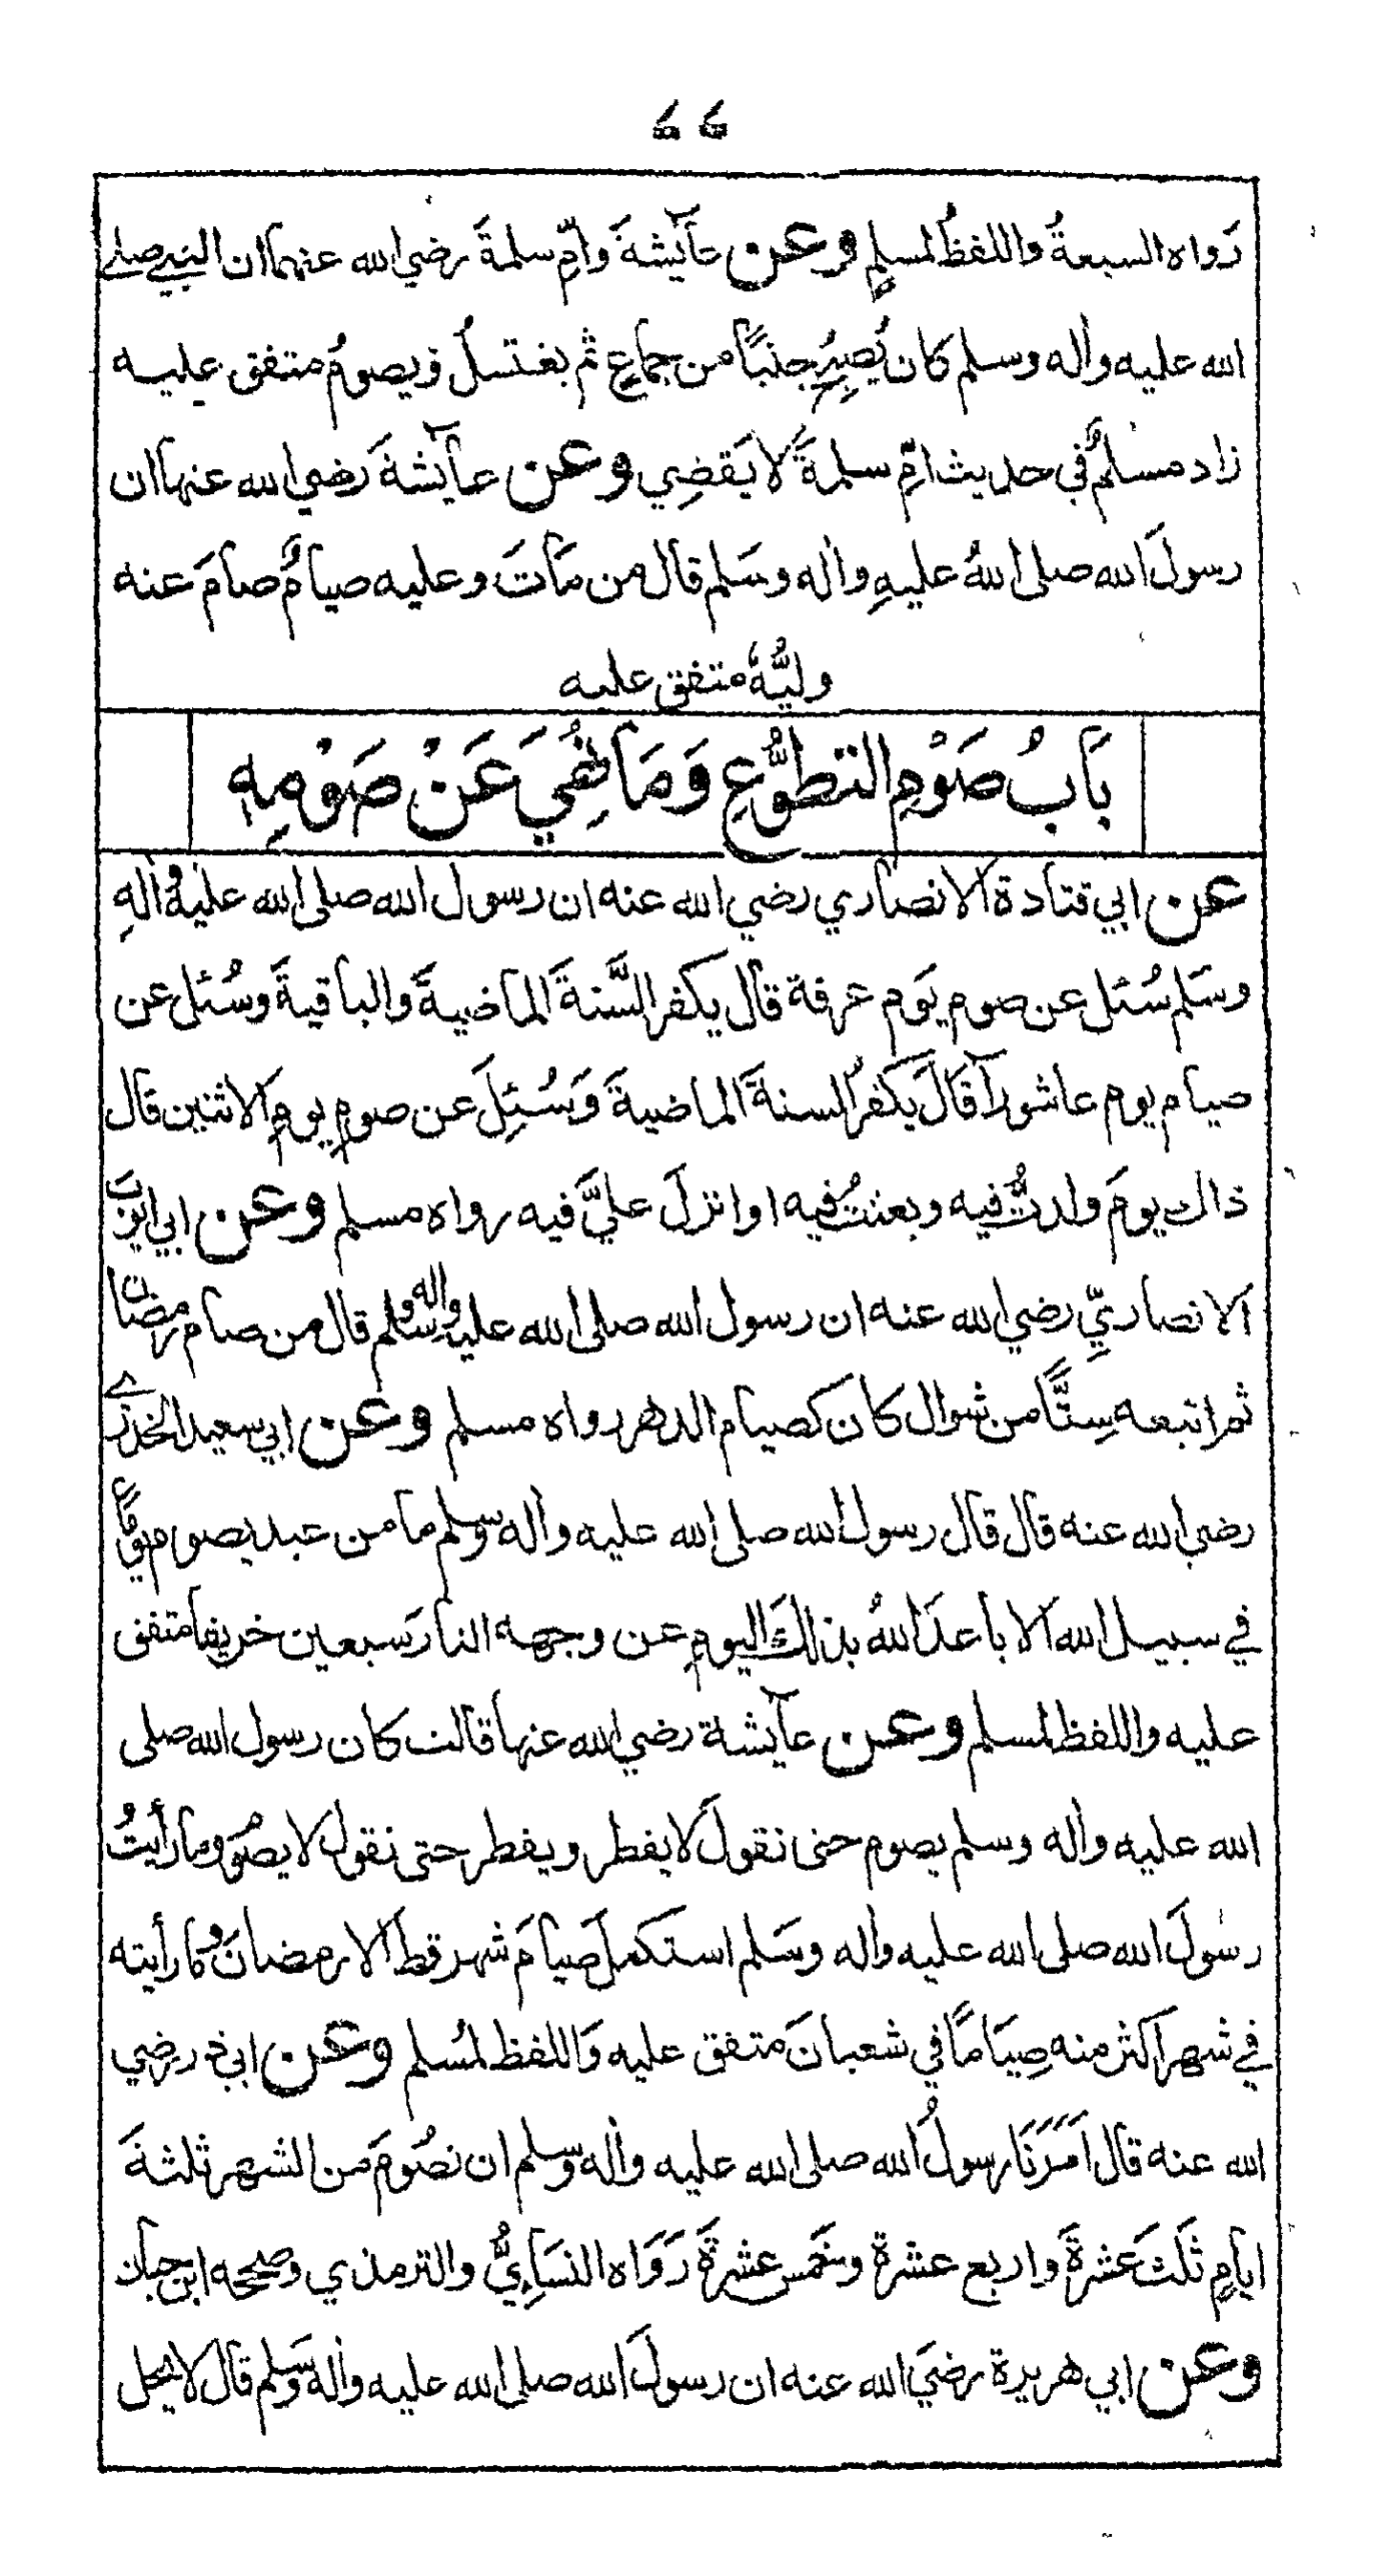 ۶۶
رَواه السبعةُ واللفظُ لمسلمٍ وعن عآيشةَ وامِّ سلمةَ رضي الله عنهما ان النبي صلى
الله عليه واٰله وسلم كان يُصبِحُ جنبًا من جماعٍ ثم يغتسلُ ويصومُ متفق عليه
زاد مسلمٌ في حديث امِّ سلمةَ لا يَقضِي وعن عآيشةَ رضي الله عنها ان
رسولَ الله صلى اللهُ عليهِ واٰله وسَلم قال من مَاتَ وعليه صيامٌ صامَ عنه
وليُّهٗ متفق عليه
بَابُ صَوْمِ التطوُّعِ وَمَا نُهِيَ عَنْ صَوْمِهِ
عن ابي قتادة الانصاري رضي الله عنه ان رسول الله صلى الله عليه واٰلهِ
وسَلم سُئل عن صوم يَوم عرفة قال يكفر السَّنةَ الماضيةَ والباقيةَ وسُئل عن
صيام يوم عاشورآ قَالَ يكفرُ السنةَ الماضيةَ وَسُئِلَ عن صومِ يومِ الاثنين قال
ذالك يومَ ولدتُّ فيه وبعثتُ فيه او انزلَ عليَّ فيه رواه مسلم وعن ابي ايوبَ
الانصاريِّ رضي الله عنه ان رسول الله صلى الله عليه واله وسلم قال من صام رمضان
ثم اتبعه سِتًّا من شوال كان كصيام الدهر رواه مسلم وعن ابي سعيد الخدري
رضي الله عنه قال قال رسول الله صلى الله عليه واٰله وسلم ما من عبد يصوم يومًا
في سبيل الله الا باعدَ اللهُ بذالك اليومِ عن وجهه النارَ سبعين خريفا متفق
عليه واللفظ لمسلم وعن عآيشة رضي الله عنها قالت كان رسول الله صلى
الله عليه واٰله وسلم يصوم حتى نقولَ لا يفطر ويفطر حتى نقول لا يصُوم وما رأيتُ
رسُولَ الله صلى الله عليه واٰله وسَلم استكملَ صيامَ شهر قط الا رمضانَ وما رأيته
في شهر اكثر منه صِيَامًا في شعبانَ متفق عليه وَاللفظ لمسُلم وعن ابي ذر رضي
الله عنه قال اَمَرَنَا رسولُ الله صلى الله عليه واٰله وسلم ان نصُومَ من الشهر ثلثةَ
ايامٍ ثَلثَ عَشرةَ واربع عشرة وخَمسَ عشرةَ رَوَاه النسَايِيُّ والترمذي وصححه ابن حبان
وعن ابي هريرة رضيَ الله عنه ان رسولَ الله صلى الله عليه واٰله وسَلم قال لا يحل